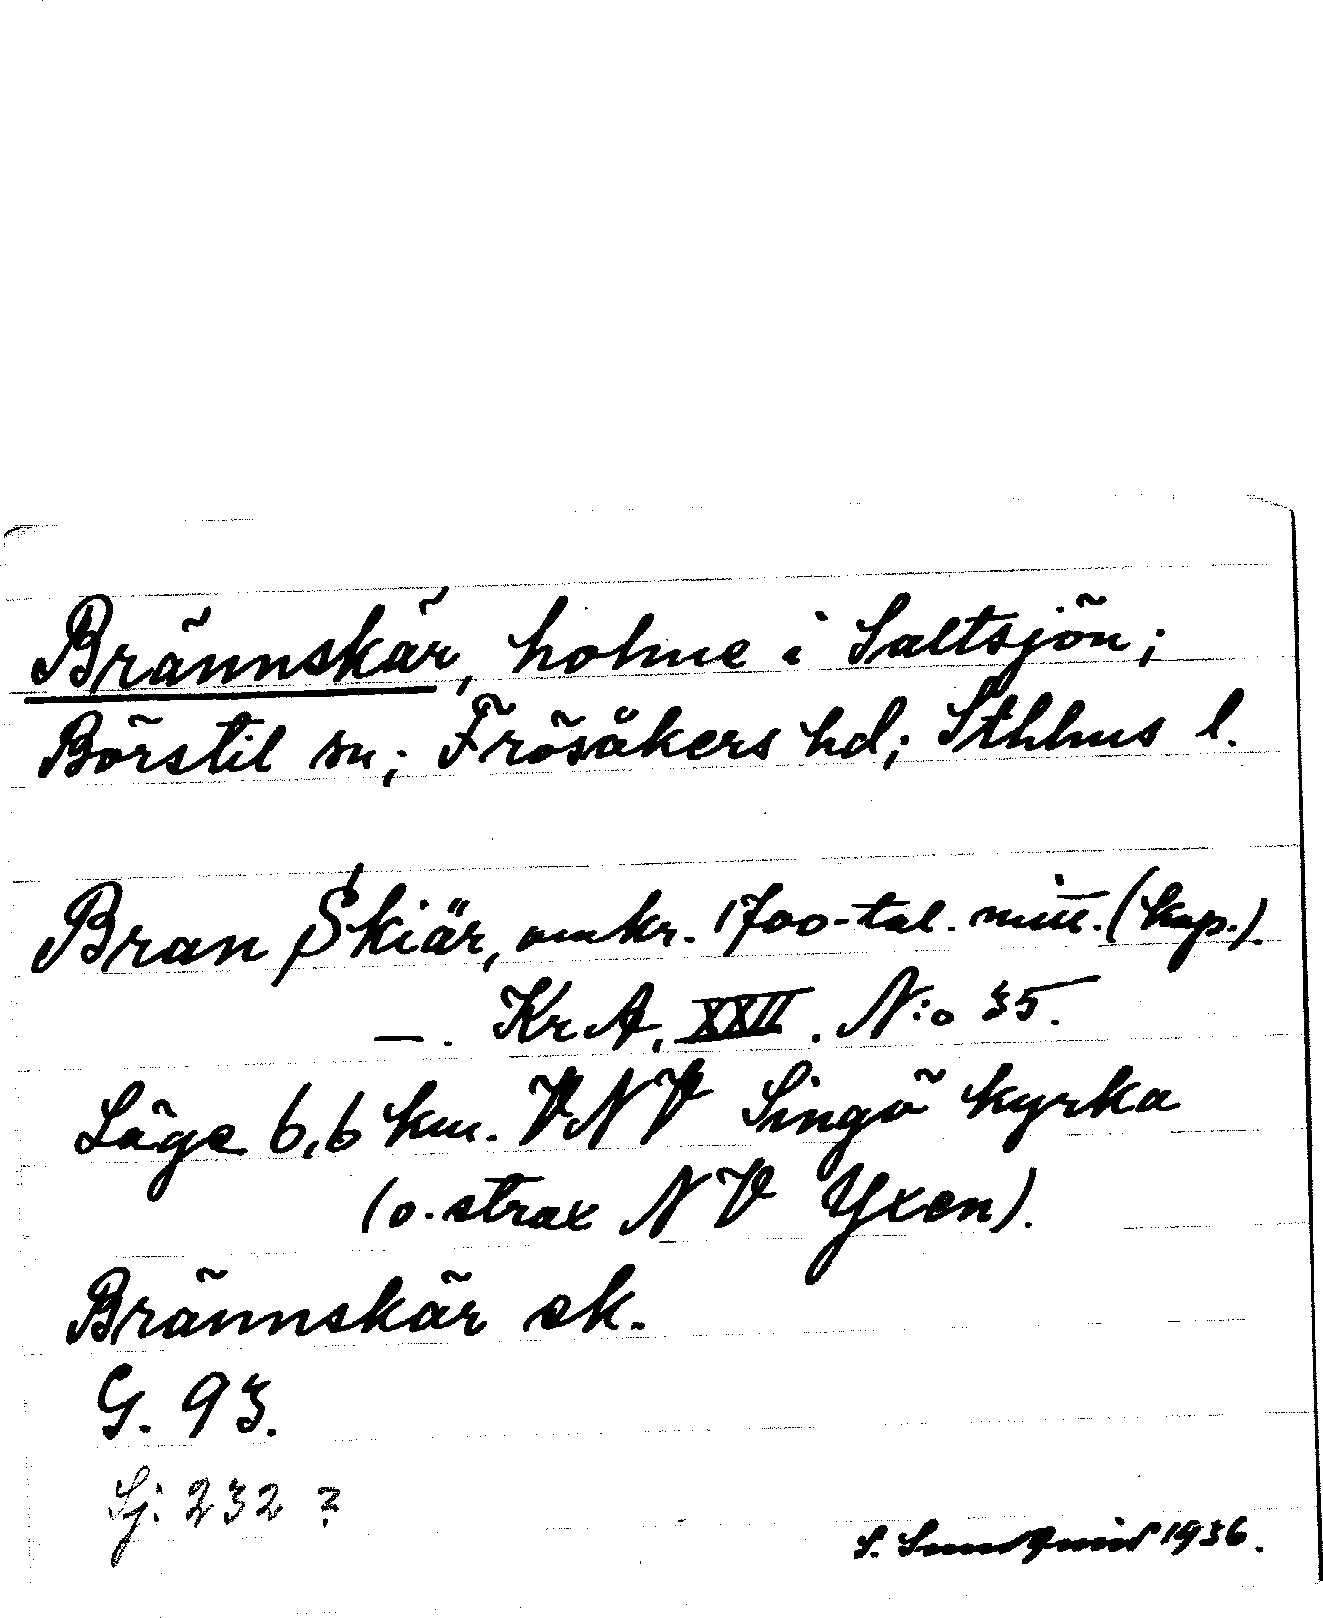 Brännskär, holme i Saltsjön;
Börstil sn; Frösåkers hd; Sthlms l.
Bran Skiär, omkr. 1700-tal. mitt. (kop.).
—. KrA, XXII. N:o 35.
Läge 6,6 km. VNV Singö kyrka
(o. strax NV Yxen).
Brännskär ek.
G. 93.
Sj: 232 ?
S. Sundquist 1936.